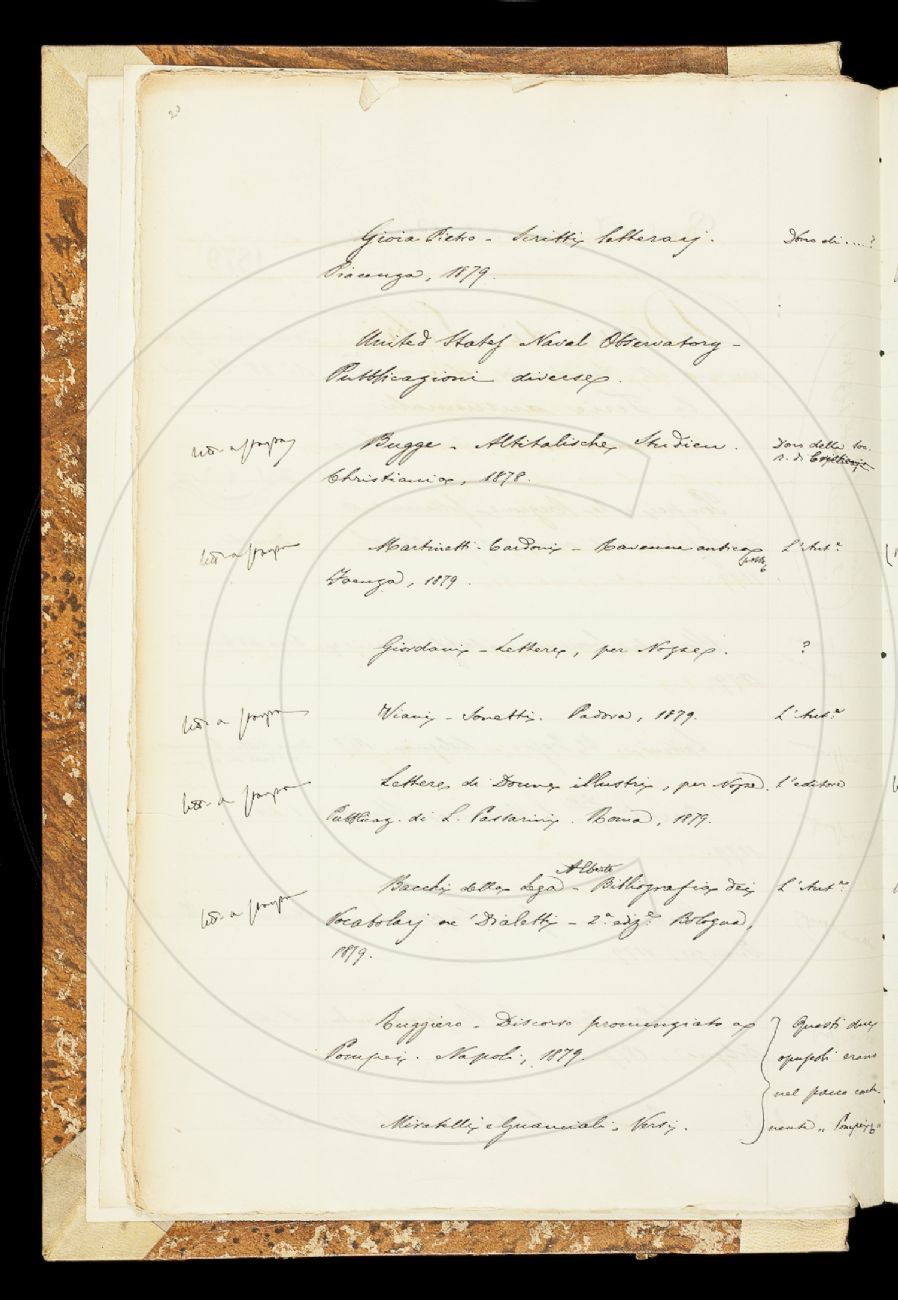 23
Gioia Pietro - Scritti letterarj. Dono di .... ?
Piacenza, 1879.
United States Naval Observatory -
Pubblicazioni diverse.
Bugge - Altitalische Studien. Dono della Soc.
Christiania, 1878. R. di
Martinetti-Cardoni - Ravenna antica L'Aut.e
Faenza, 1879.
Giordani - Lettere, per Nozze. ?
Viani - Sonetti. Padova, 1879. L'Aut.e
Lettere di Donne illustri, per Nozze. L'editore
Pubblicaz. di L. Passarini. Roma, 1879.
Alberto
Bacchi della Lega - Bibliografia dei L'Aut.e
Vocabolarj ne' Dialetti - 2.a ediz.e Bologna,
1879.
Ruggiero - Discorso pronunziato a Questi due
Pompei. Napoli, 1879. opuscoli erano
nel pacco conte-
Mirabelli e Guanciali. Versi. nente „ Pompei "